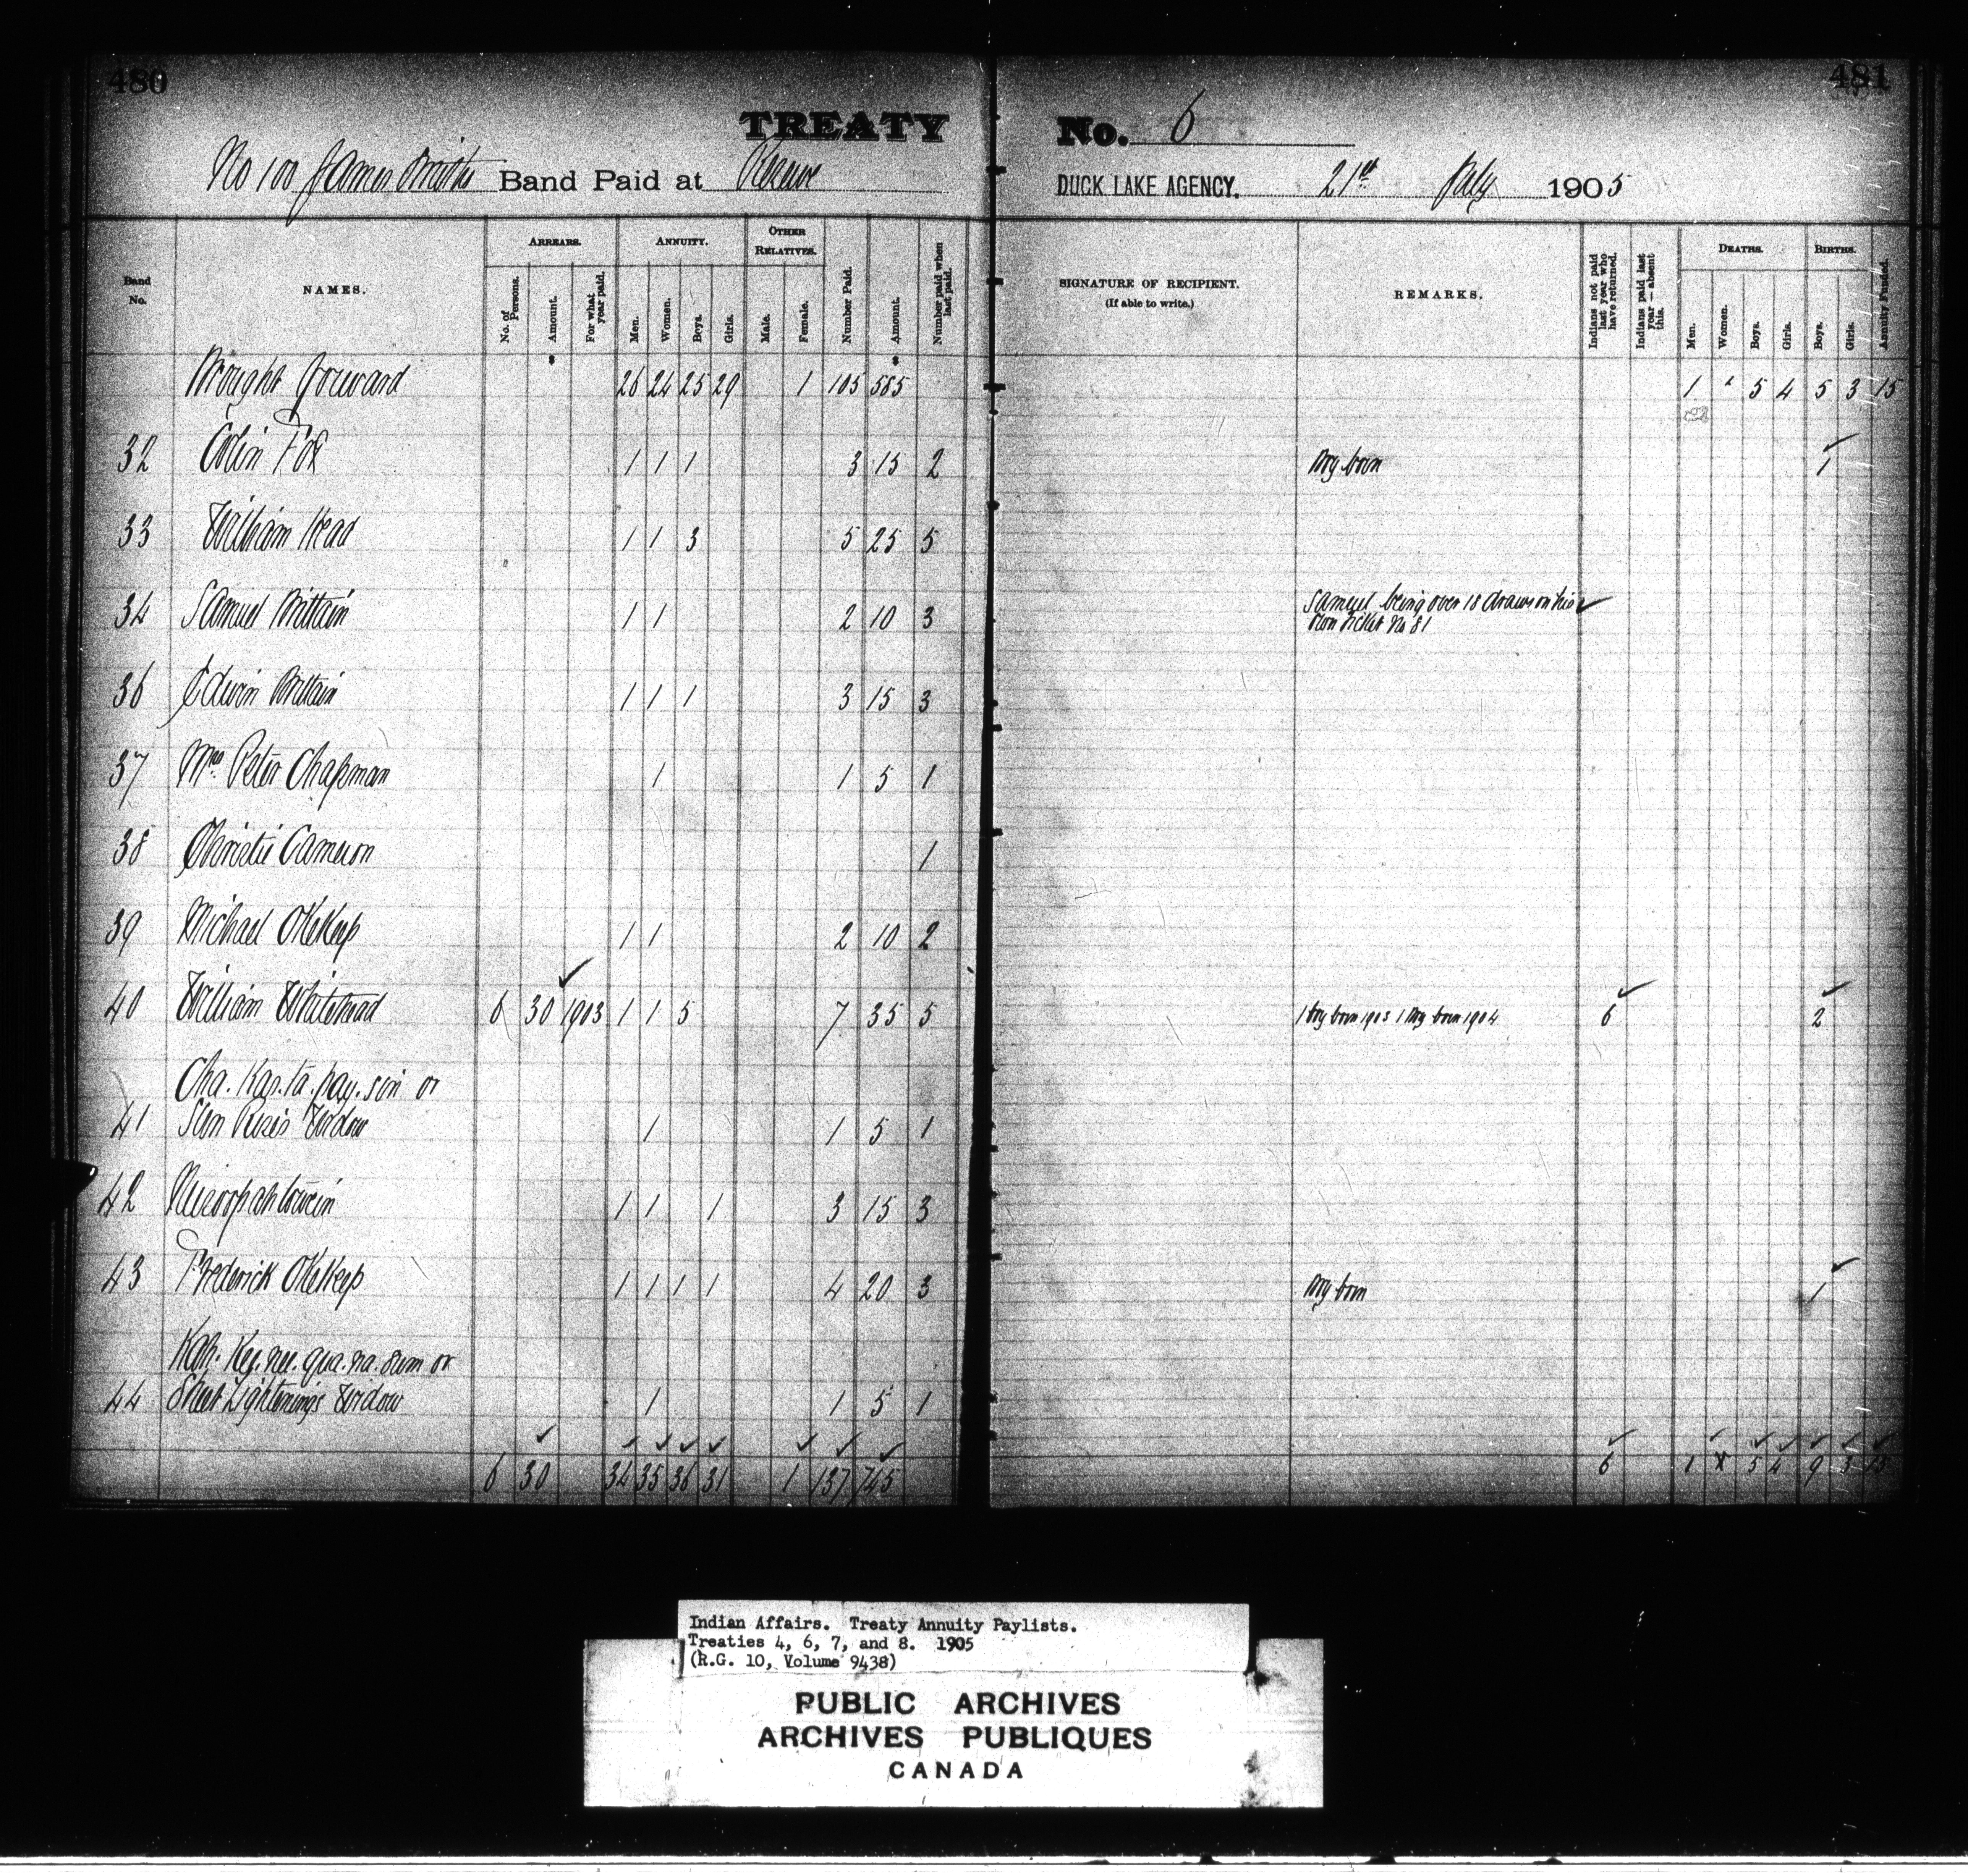 480
481
TREATY No. 6
No 100 James Smiths Band Paid at Reserve
DUCK LAKE AGENCY. 21st July 1905
Band No.
NAMES.
ARREARS.
No. of Persons.
Amount.
For what year paid.
ANNUITY.
Men.
Women.
Boys.
Girls.
OTHER RELATIVES.
Male.
Female.
Number Paid.
Amount.
Number paid when last paid.
SIGNATURE OF RECIPIENT.
(If able to write.)
REMARKS.
Indians not paid last year who have returned.
Indians paid last year — absent this.
DEATHS.
Men.
Women.
Boys.
Girls.
BIRTHS.
Boys.
Girls.
Annuity Funded.
Brought forward 26 24 25 29 1 105 585 1 2 5 4 5 3 15
32 Colin Fox 1 1 1 3 15 2 Boy born 1
33 William Head 1 1 3 5 25 5
34 Samuel Brittain 1 1 2 10 3 Samuel being over 18 draws on his
own ticket No 81
36 Edwin Brittain 1 1 1 3 15 3
37 Mrs. Peter Chapman 1 1 5 1
38 Christie Cameron 1
39 Michael OKeKeep 1 1 2 10 2
40 William Whitehead 6 30 1903 1 1 5 7 35 5 1 boy born 1903 1 Boy born 1904 6 2
Cha. Kas. ta. pay. sin or
41 Sun Rises Widow 1 1 5 1
42 1 1 1 3 15 3
43 Frederick OKeKeep 1 1 1 1 4 20 3 Boy born 1
Kah. Key. nee. qua. na. sum or
44 Sheet Lightnings Widow 1 1 5 1
6 30 34 35 36 31 1 137 745 6 1 5 4 9 3 15
Indian Affairs. Treaty Annuity Paylists.
Treaties 4, 6, 7, and 8. 1905
(R.G. 10, Volume 9438)
PUBLIC ARCHIVES
ARCHIVES PUBLIQUES
CANADA